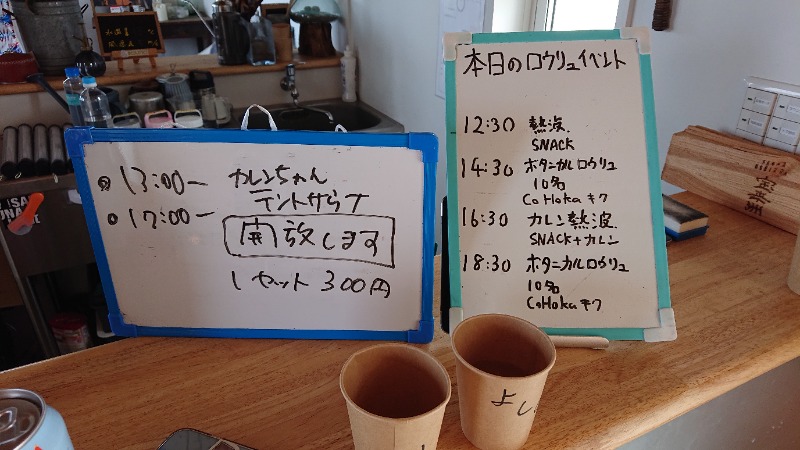 13:00ー カレンちゃん
テントサウナ
17:00ー
開放します
1セット 300円
本日のロウリュイベント
12:30 熱波
SNACK
14:30 ボタニカルロウリュ
10名
CoHoka キク
16:30 カレン熱波
SNACK+カレン
18:30 ボタニカルロウリュ
10名
CoHoka キク